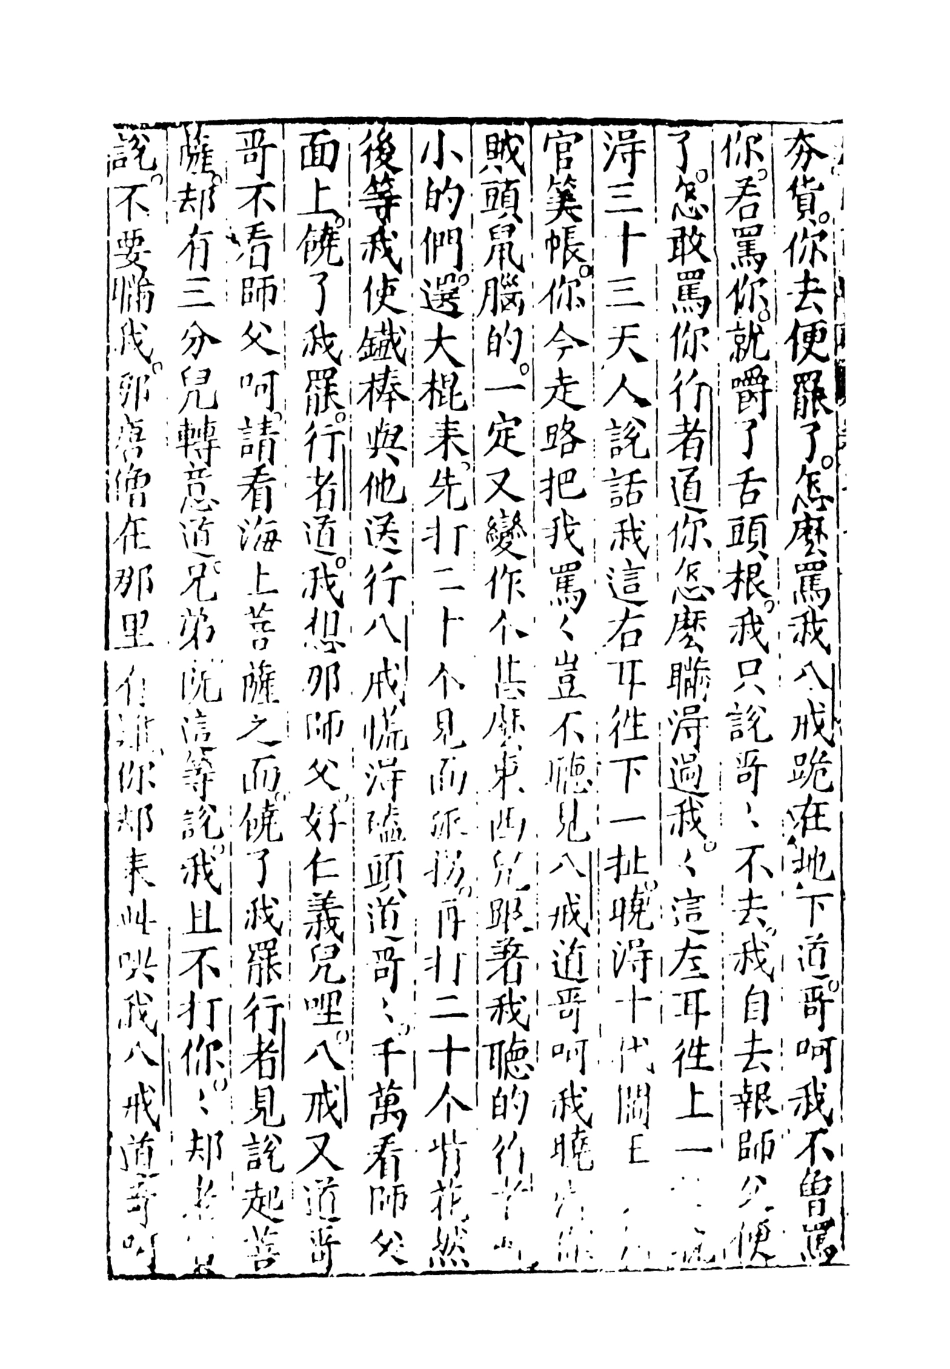 夯貨。你去便罷了。怎麼罵我八戒跪在地下道。哥呵我不曾罵
你。若罵你。就嚼了舌頭根。我只說哥〻不去。我自去報師父便
了。怎敢罵你行者道你怎麼瞞淂過我。〻這左耳徃上一
淂三十三天人說話我這右耳徃下一扯。曉淂十代閻王
官筭帳。你今走路把我罵〻豈不聴見八戒道哥呵我曉
賊頭鼠腦的。一定又變作个甚麼東西兒跟著我聴的行者
小的們。選大棍来。先打二十个見面孤拐。再打二十个背花然
後等我使鐵棒與他送行八戒慌淂磕頭道哥〻。千萬看師父
面上。饒了我罷。行者道。我想那師父。好仁義兒哩。八戒又道哥
哥不看師父呵。請看海上菩薩之面。饒了我罷行者見說起菩
薩。却有三分兒轉意道。兄弟既這等說。我且不打你。〻却老
說。不要瞞我。那唐僧在那里有難。你却来此哄我八戒道哥呵